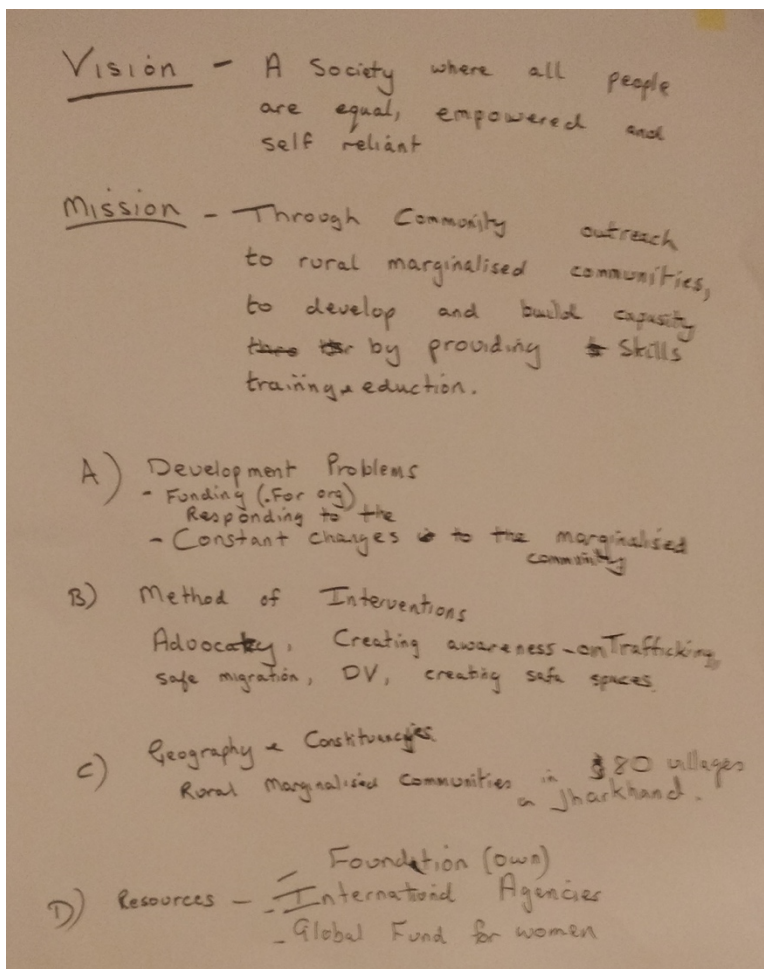 Vision - A Society where all people
are equal, empowered and
self reliant
Mission - Through Community outreach
to rural marginalised communities,
to develop and build capasity
by providing skills
training & eduction.
A) Development Problems
- Funding (.For org)
Responding to the
- Constant changes to the marginalised
community
B) Method of Interventions
Advocacy, Creating awareness - on Trafficking,
safe migration, DV, creating safe spaces.
C) Geography & Constituencies.
Rural Marginalised Communities in 80 villages
in Jharkhand.
- Foundation (own)
D) Resources - - International Agencies
- Global Fund for women